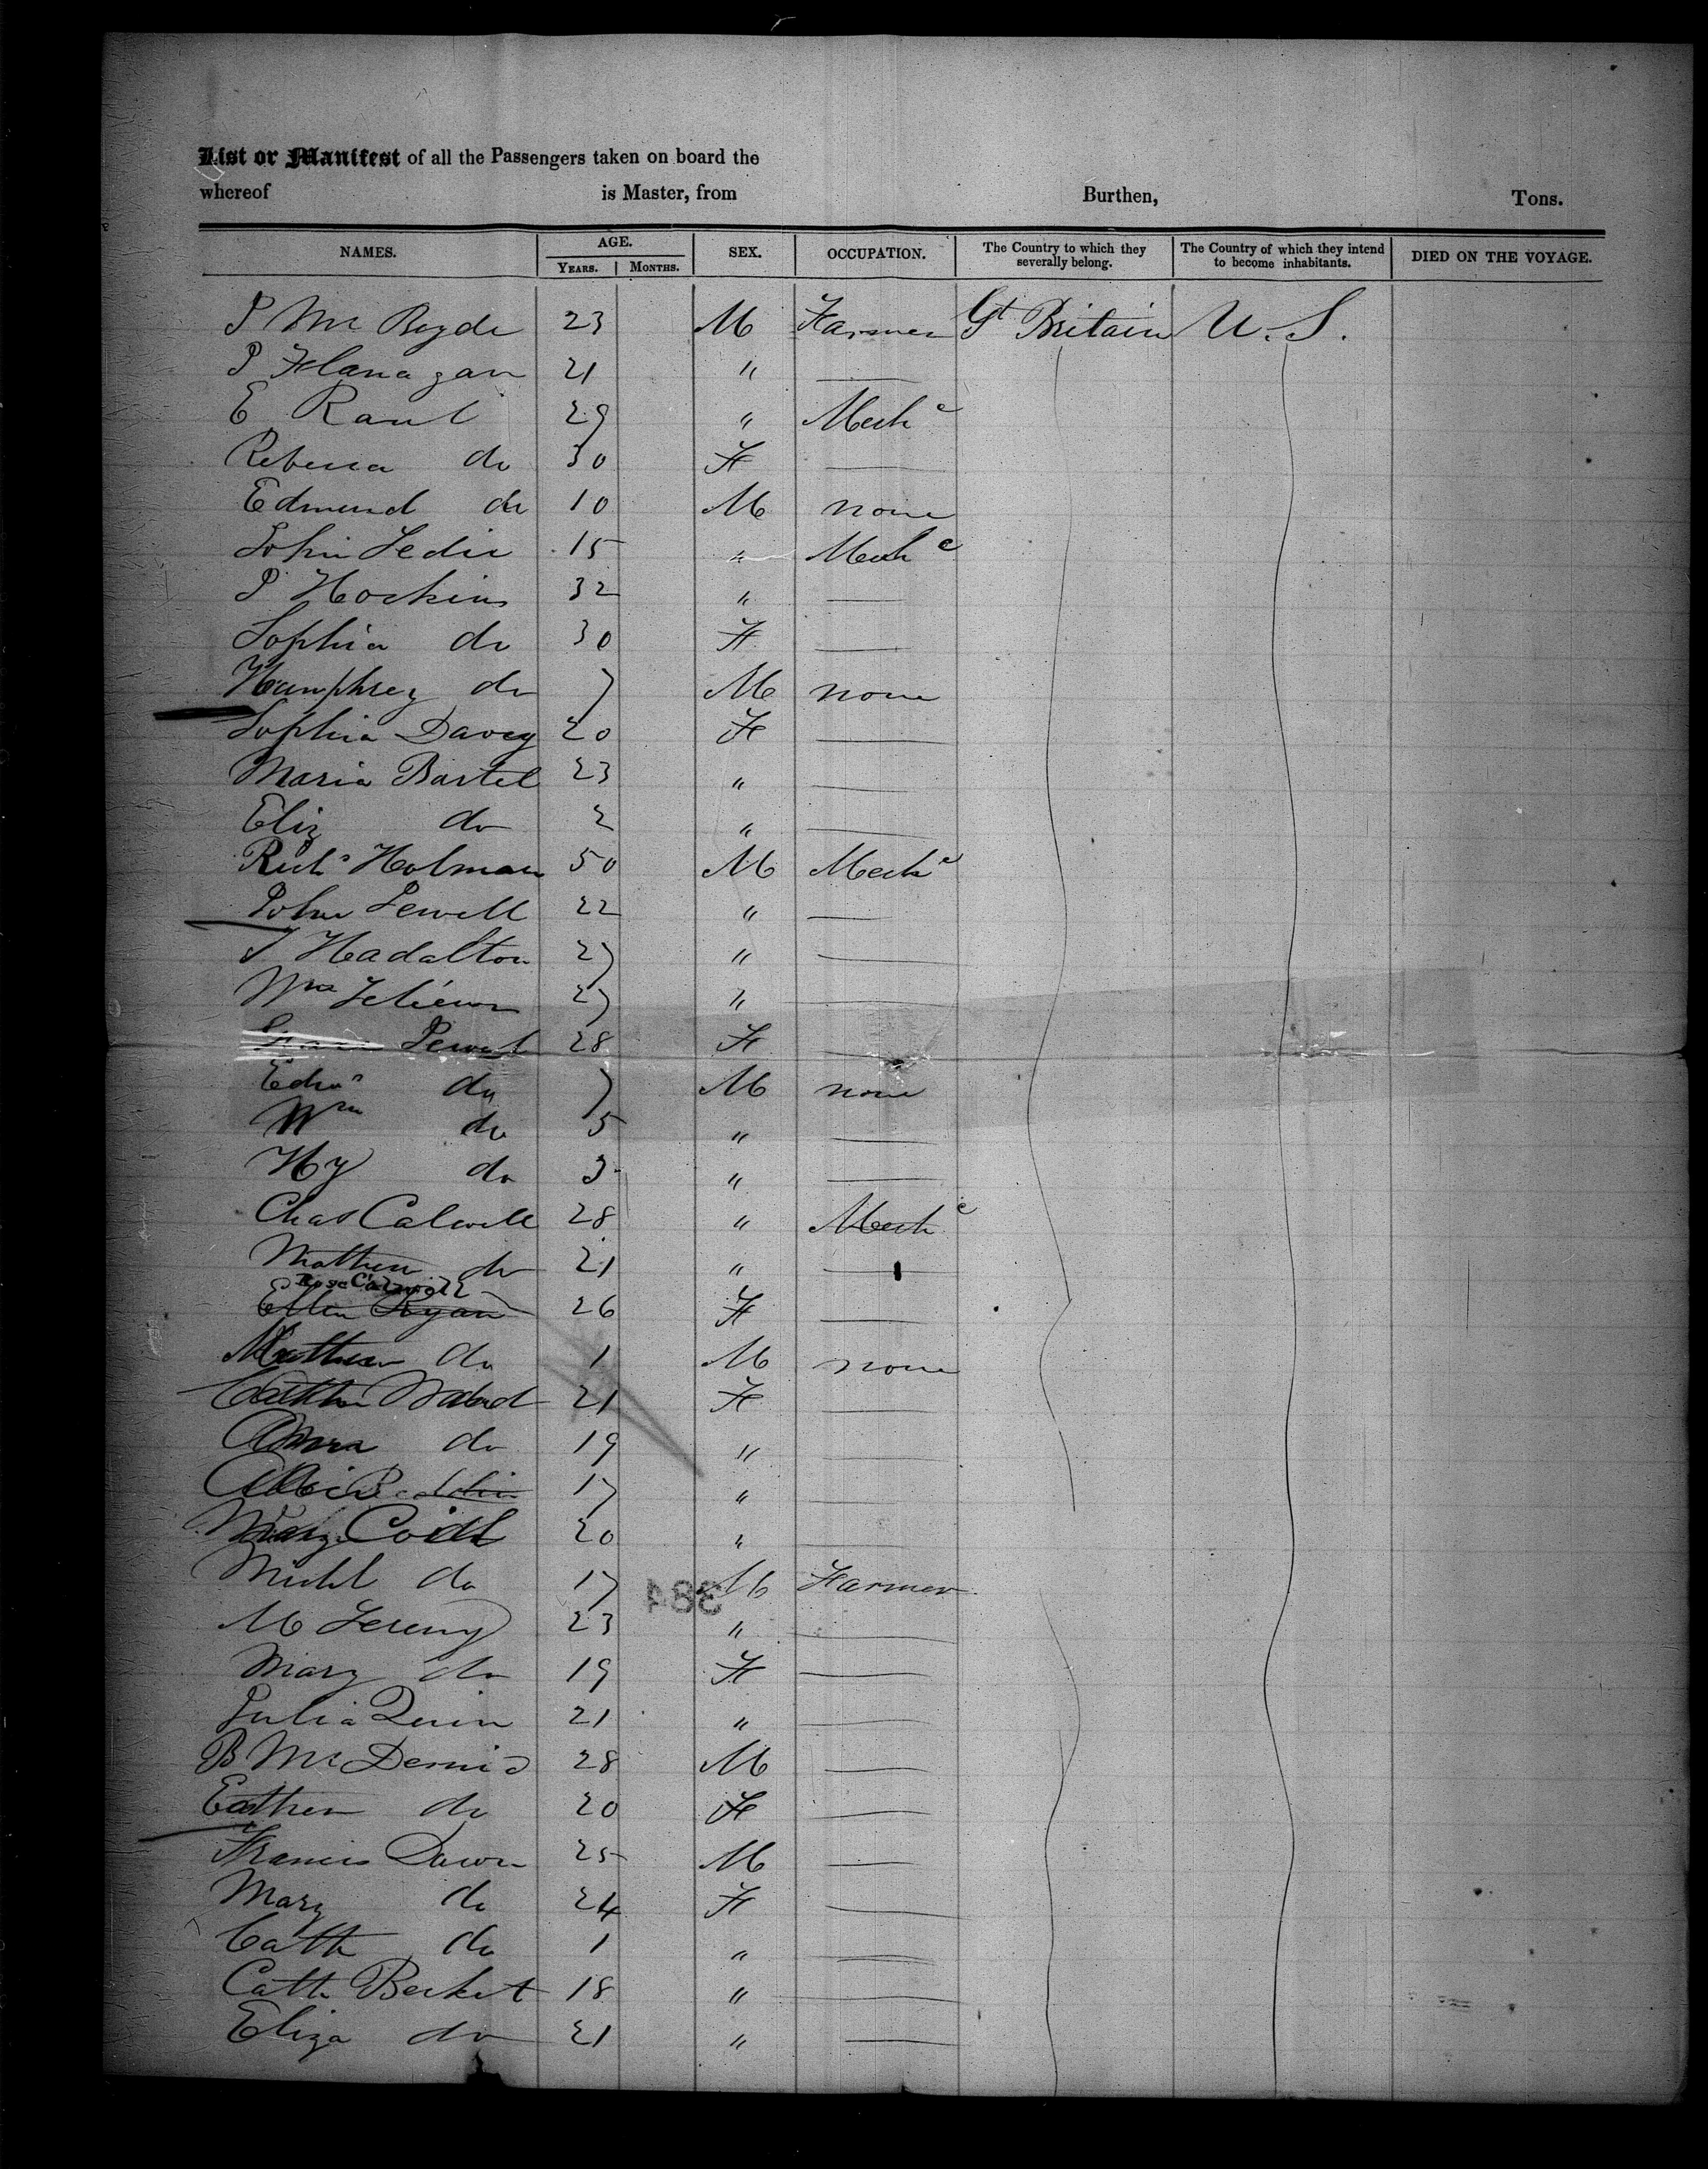 List or Manifest of all the Passengers taken on board the
whereof is Master, from Burthen, Tons.
NAMES. AGE. SEX. OCCUPATION. The Country to which they severally belong. The Country of which they intend to become inhabitants. DIED ON THE VOYAGE.
YEARS. MONTHS.
P Mc Bryde 23 M Farmer Gt Britain U.S.
P Flanagan 21 "
E Raul 29 " Mechc
Rebecca do 30 F
Edmund do 10 M none
John 15 " Mechc
P Hockins 32 "
Sophia do 30 F
Humphrey do 7 M none
Sophia Davey 20 F
Maria Bartel 23 "
Eliz do 2 "
Richd Holman 50 M Mechc
John Sewell 22 "
J Hadalton 27 "
Wm 27 "
28 F
Edwd do 7 M none
Wm do 5 "
Hy do 3 "
Chas Calwell 28 " Mechc
Matthew do 21 "
Rose Calwell
Ellen Ryan 26 F
Matthew do 1 M none
21 F
do 19 "
17 "
Mary 20 "
Michl do 17 M Farmer
384
M 23 "
Mary do 19 F
Julia Quin 21 "
B McDermid 28 M
do 20 F
Francis 25 M
Mary do 24 F
Cath do 1 "
Cath Becket 18 "
Eliza do 21 "